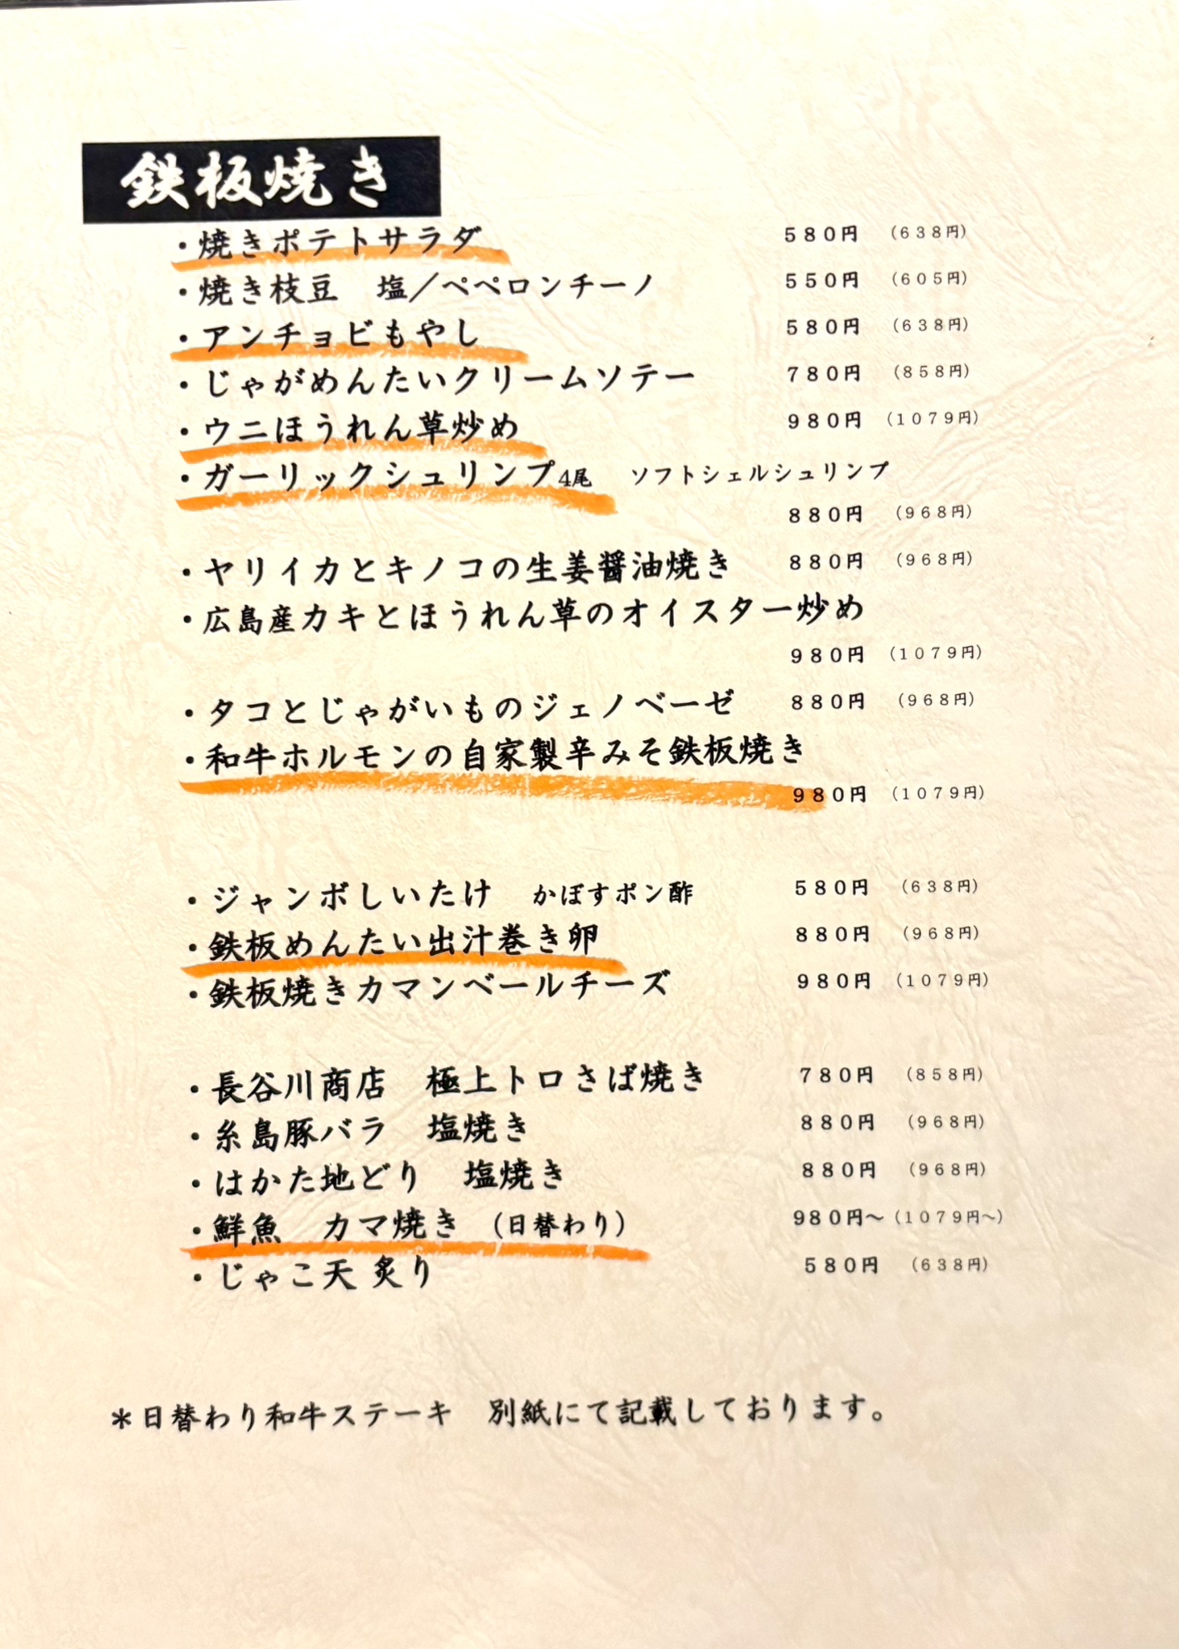 鉄板焼き
・焼きポテトサラダ　580円　(638円)
・焼き枝豆　塩／ペペロンチーノ　550円　(605円)
・アンチョビもやし　580円　(638円)
・じゃがめんたいクリームソテー　780円　(858円)
・ウニほうれん草炒め　980円　(1079円)
・ガーリックシュリンプ4尾　ソフトシェルシュリンプ
880円　(968円)
・ヤリイカとキノコの生姜醤油焼き　880円　(968円)
・広島産カキとほうれん草のオイスター炒め
980円　(1079円)
・タコとじゃがいものジェノベーゼ　880円　(968円)
・和牛ホルモンの自家製辛みそ鉄板焼き
980円　(1079円)
・ジャンボしいたけ　かぼすポン酢　580円　(638円)
・鉄板めんたい出汁巻き卵　880円　(968円)
・鉄板焼きカマンベールチーズ　980円　(1079円)
・長谷川商店　極上トロさば焼き　780円　(858円)
・糸島豚バラ　塩焼き　880円　(968円)
・はかた地どり　塩焼き　880円　(968円)
・鮮魚　カマ焼き　(日替わり)　980円〜　(1079円〜)
・じゃこ天 炙り　580円　(638円)
＊日替わり和牛ステーキ　別紙にて記載しております。